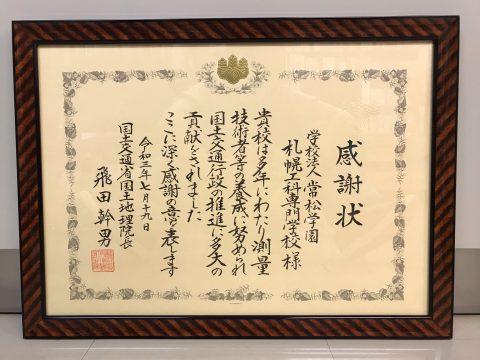 感謝状
学校法人常松学園
札幌工科専門学校様
貴校は多年にわたり測量
技術者等の養成に努められ
国土交通行政の推進に多大の
貢献をされました
ここに深く感謝の意を表します
令和三年七月十九日
国土交通省国土地理院長
飛田幹男